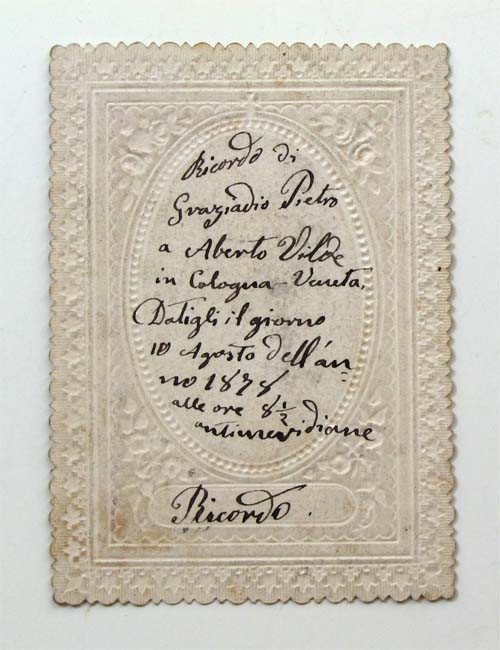 Ricordo di
Graziadio Pietro
a Aberto Vilde
in Cologna-Veneta,
Datigli il giorno
10 Agosto dell'an=
no 1878
alle ore 8 1/2
antimeridiane
Ricordo.